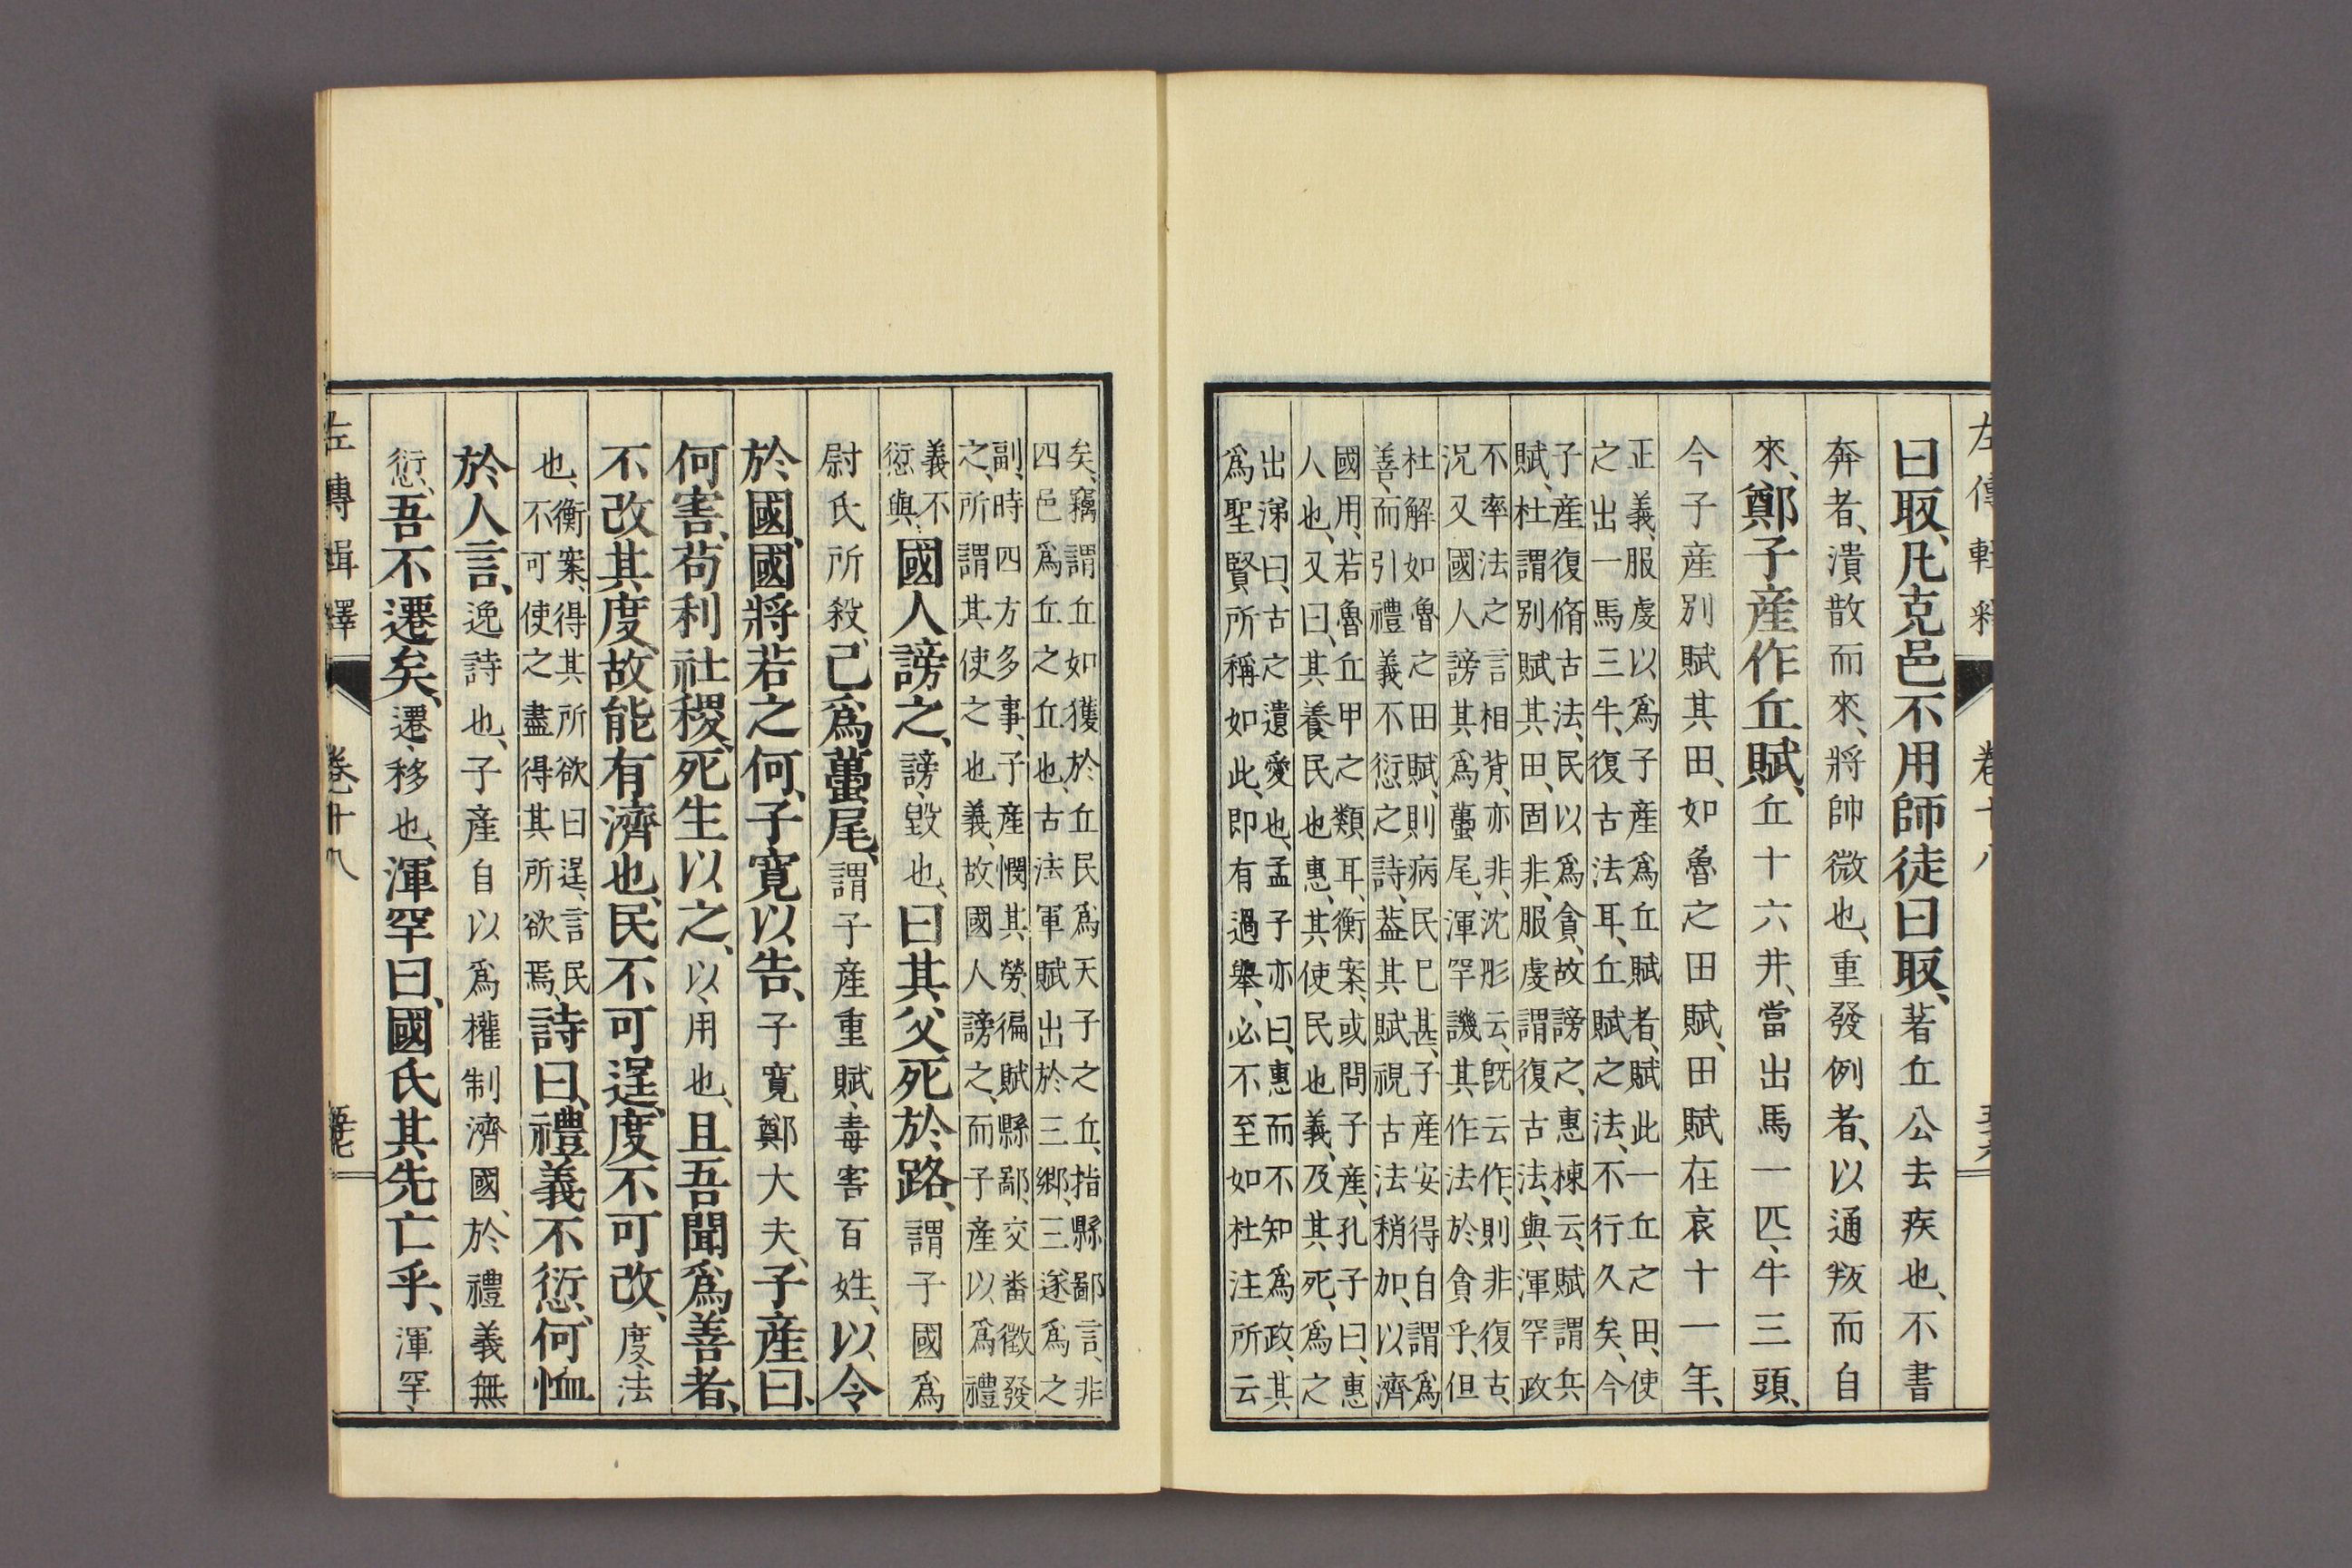 左傳輯釋 卷十八
曰取、凡克邑不用師徒曰取、著丘公去疾也、不書
奔者、潰散而來、將帥微也、重發例者、以通叛而自
來、鄭子産作丘賦、丘十六井、當出馬一匹、牛三頭、
今子産別賦其田、如魯之田賦、田賦在哀十一年、
正義、服虔以爲子産爲丘賦者、賦此一丘之田、使
之出一馬三牛、復古法耳、丘賦之法、不行久矣、今
子産復脩古法、民以爲貪、故謗之、惠棟云、賦謂兵
賦、杜謂別賦其田、固非、服虔謂復古法、與渾罕政
不率法之言相背、亦非、沈彤云、旣云作、則非復古、
況又國人謗其爲蠆尾、渾罕譏其作法於貪乎、但
杜解如魯之田賦、則病民已甚、子産安得自謂爲
善、而引禮義不愆之詩、葢其賦視古法稍加、以濟
國用、若魯丘甲之類耳、衡案、或問子産、孔子曰、惠
人也、又曰、其養民也惠、其使民也義、及其死、爲之
出涕曰、古之遺愛也、孟子亦曰、惠而不知爲政、其
爲聖賢所稱如此、即有過擧、必不至如杜注所云
矣、竊謂丘如獲於丘民爲天子之丘、指縣鄙言、非
四邑爲丘之丘也、古法軍賦出於三鄉、三遂爲之
副、時四方多事、子産憫其勞、徧賦縣鄙、交畨徵發
之、所謂其使之也義、故國人謗之、而子産以爲禮
義不
愆與、國人謗之、謗、毀也、曰、其父死於路、謂子國爲
尉氏所殺、己爲蠆尾、謂子産重賦、毒害百姓、以令
於國、國將若之何、子寬以告、子寬鄭大夫、子産曰、
何害、苟利社稷、死生以之、以、用也、且吾聞爲善者、
不改其度、故能有濟也、民不可逞、度不可改、度、法
也、衡案、得其所欲曰逞、言民
不可使之盡得其所欲焉、詩曰、禮義不愆、何恤
於人言、逸詩也、子産自以爲權制濟國、於禮義無
愆、吾不遷矣、遷、移也、渾罕曰、國氏其先亡乎、渾罕、
左傳輯釋 卷十八